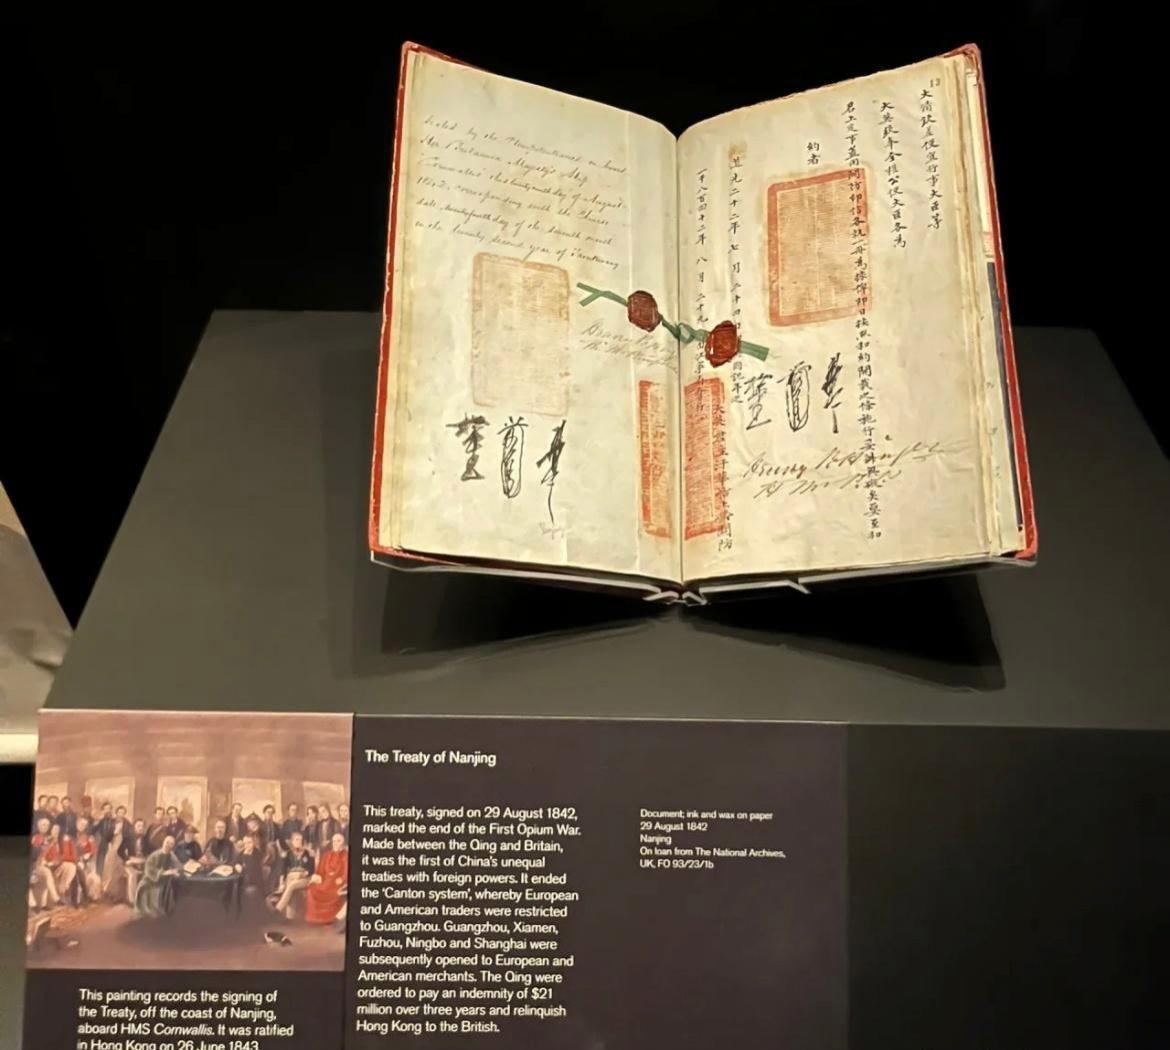 Sealed by the Plenipotentiaries on board
Her Britannic Majesty's Ship
Cornwallis this twenty ninth day of August
1842, corresponding with the Chinese
date, twenty fourth day of the seventh month
in the twenty second year of Taoukwang
13
大清欽差便宜行事大臣等
大英欽奉全權公使大臣各為
君上定事蓋用關防印信各執一冊為據俾即日按照和約開載之條施行妥辦無礙矣要至和
約者
道光二十二年七月二十四日
一千八百四十二年八月二十九日
大英
The Treaty of Nanjing
This treaty, signed on 29 August 1842,
marked the end of the First Opium War.
Made between the Qing and Britain,
it was the first of China's unequal
treaties with foreign powers. It ended
the 'Canton system', whereby European
and American traders were restricted
to Guangzhou. Guangzhou, Xiamen,
Fuzhou, Ningbo and Shanghai were
subsequently opened to European and
American merchants. The Qing were
ordered to pay an indemnity of $21
million over three years and relinquish
Hong Kong to the British.
Document; ink and wax on paper
29 August 1842
Nanjing
On loan from The National Archives,
UK, FO 93/23/1b
This painting records the signing of
the Treaty, off the coast of Nanjing,
aboard HMS Cornwallis. It was ratified
in Hong Kong on 26 June 1843.